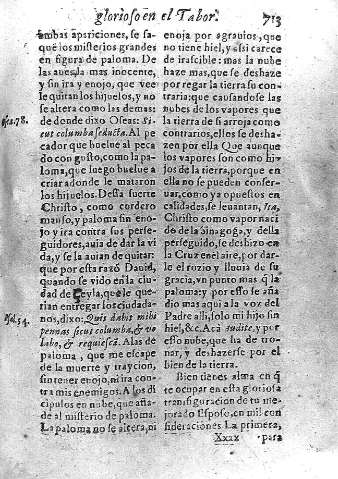 glorioso en el Tabor.
713
ambas apariciones, se sa-
què los misterios grandes
en figura de paloma. De
las aues, la mas inocente,
y sin ira y enojo, que vee
le quitan los hijuelos, y no
se altera como las demas:
de donde dixo Oseas: Si-
cut columba seducta. Al pe
cador que buelue al peca-
do con gusto, como la pa-
loma, que luego buelue a
criar adonde le mataron
los hijuelos. Desta suerte
Christo, como cordero
manso, y paloma sin eno-
jo y ira contra sus perse-
guidores, auia de dar la vi
da, y se la auian de quitar:
que por esta razõ Dauid,
quando se vido en la ciu-
dad de Ceyla, que le que-
rian entregar los ciudada-
nos, dixo: Quis dabit mihi
pennas sicut columbæ, & vo
labo, & requiescã. Alas de
paloma, que me escape
de la muerte y traycion,
sin tener enojo, ni ira con-
tra mis enemigos. A los di
cipulos en nube, que aña-
de al misterio de paloma.
La paloma no se altera, ni
Osea. 78.
Psal. 54.
enoja por agrauios, que
no tiene hiel, y assi carece
de irascible: mas la nube
haze mas, que se deshaze
por regar la tierra su con-
traria; que causandose las
nubes de los vapores que
la tierra de si arroja como
contrarios, ellos se desha-
zen por ella Que aunque
los vapores son como hi-
jos de la tierra, porque en
ella no se pueden conser-
uar, como ya opuestos en
calidades, se leuantan,
Christo como vapor naci
do de la Sinagoga, y della
perseguido, se deshizo en
la Cruz en el aire, por dar
le el rozio y lluuia de su
gracia, vn punto mas q̃ la
paloma: y por esso se aña
dio mas aqui a la voz del
Padre alli, solo mi hijo sin
hiel, &c. Acà audite, y por
esso nube, que ha de tro-
nar, y deshazerse por el
bien de la tierra.
Bien tienes alma en q̃
te ocupar en esta gloriosa
transfiguracion de tu me-
jorado Esposo, en mil con
sideraciones La primera,
Xxxx
para